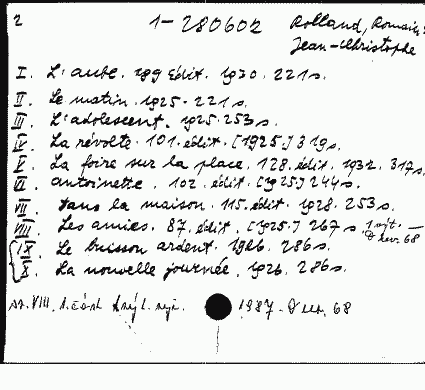 2 1-280602 Rolland, Romain:
Jean-Christophe
I. L'aube. 199 édit. 1930. 221s.
II. Le matin. 1925. 221s.
III. L'adolescent. 1925. 253s.
IV. La révolte. 101. édit. [1925] 319s.
V. La foire sur la place. 128. édit. 1932. 317s.
VI. Antoinette. 102. édit. [1925] 244s.
VII Dans la maison. 115. édit. 1928. 253s.
VIII. Les amies. 87. édit. [1925] 267s.
IX. Le buisson ardent. 1926. 286s.
X. La nouvelle journée. 1926. 286s.
VIII. 1987. 68